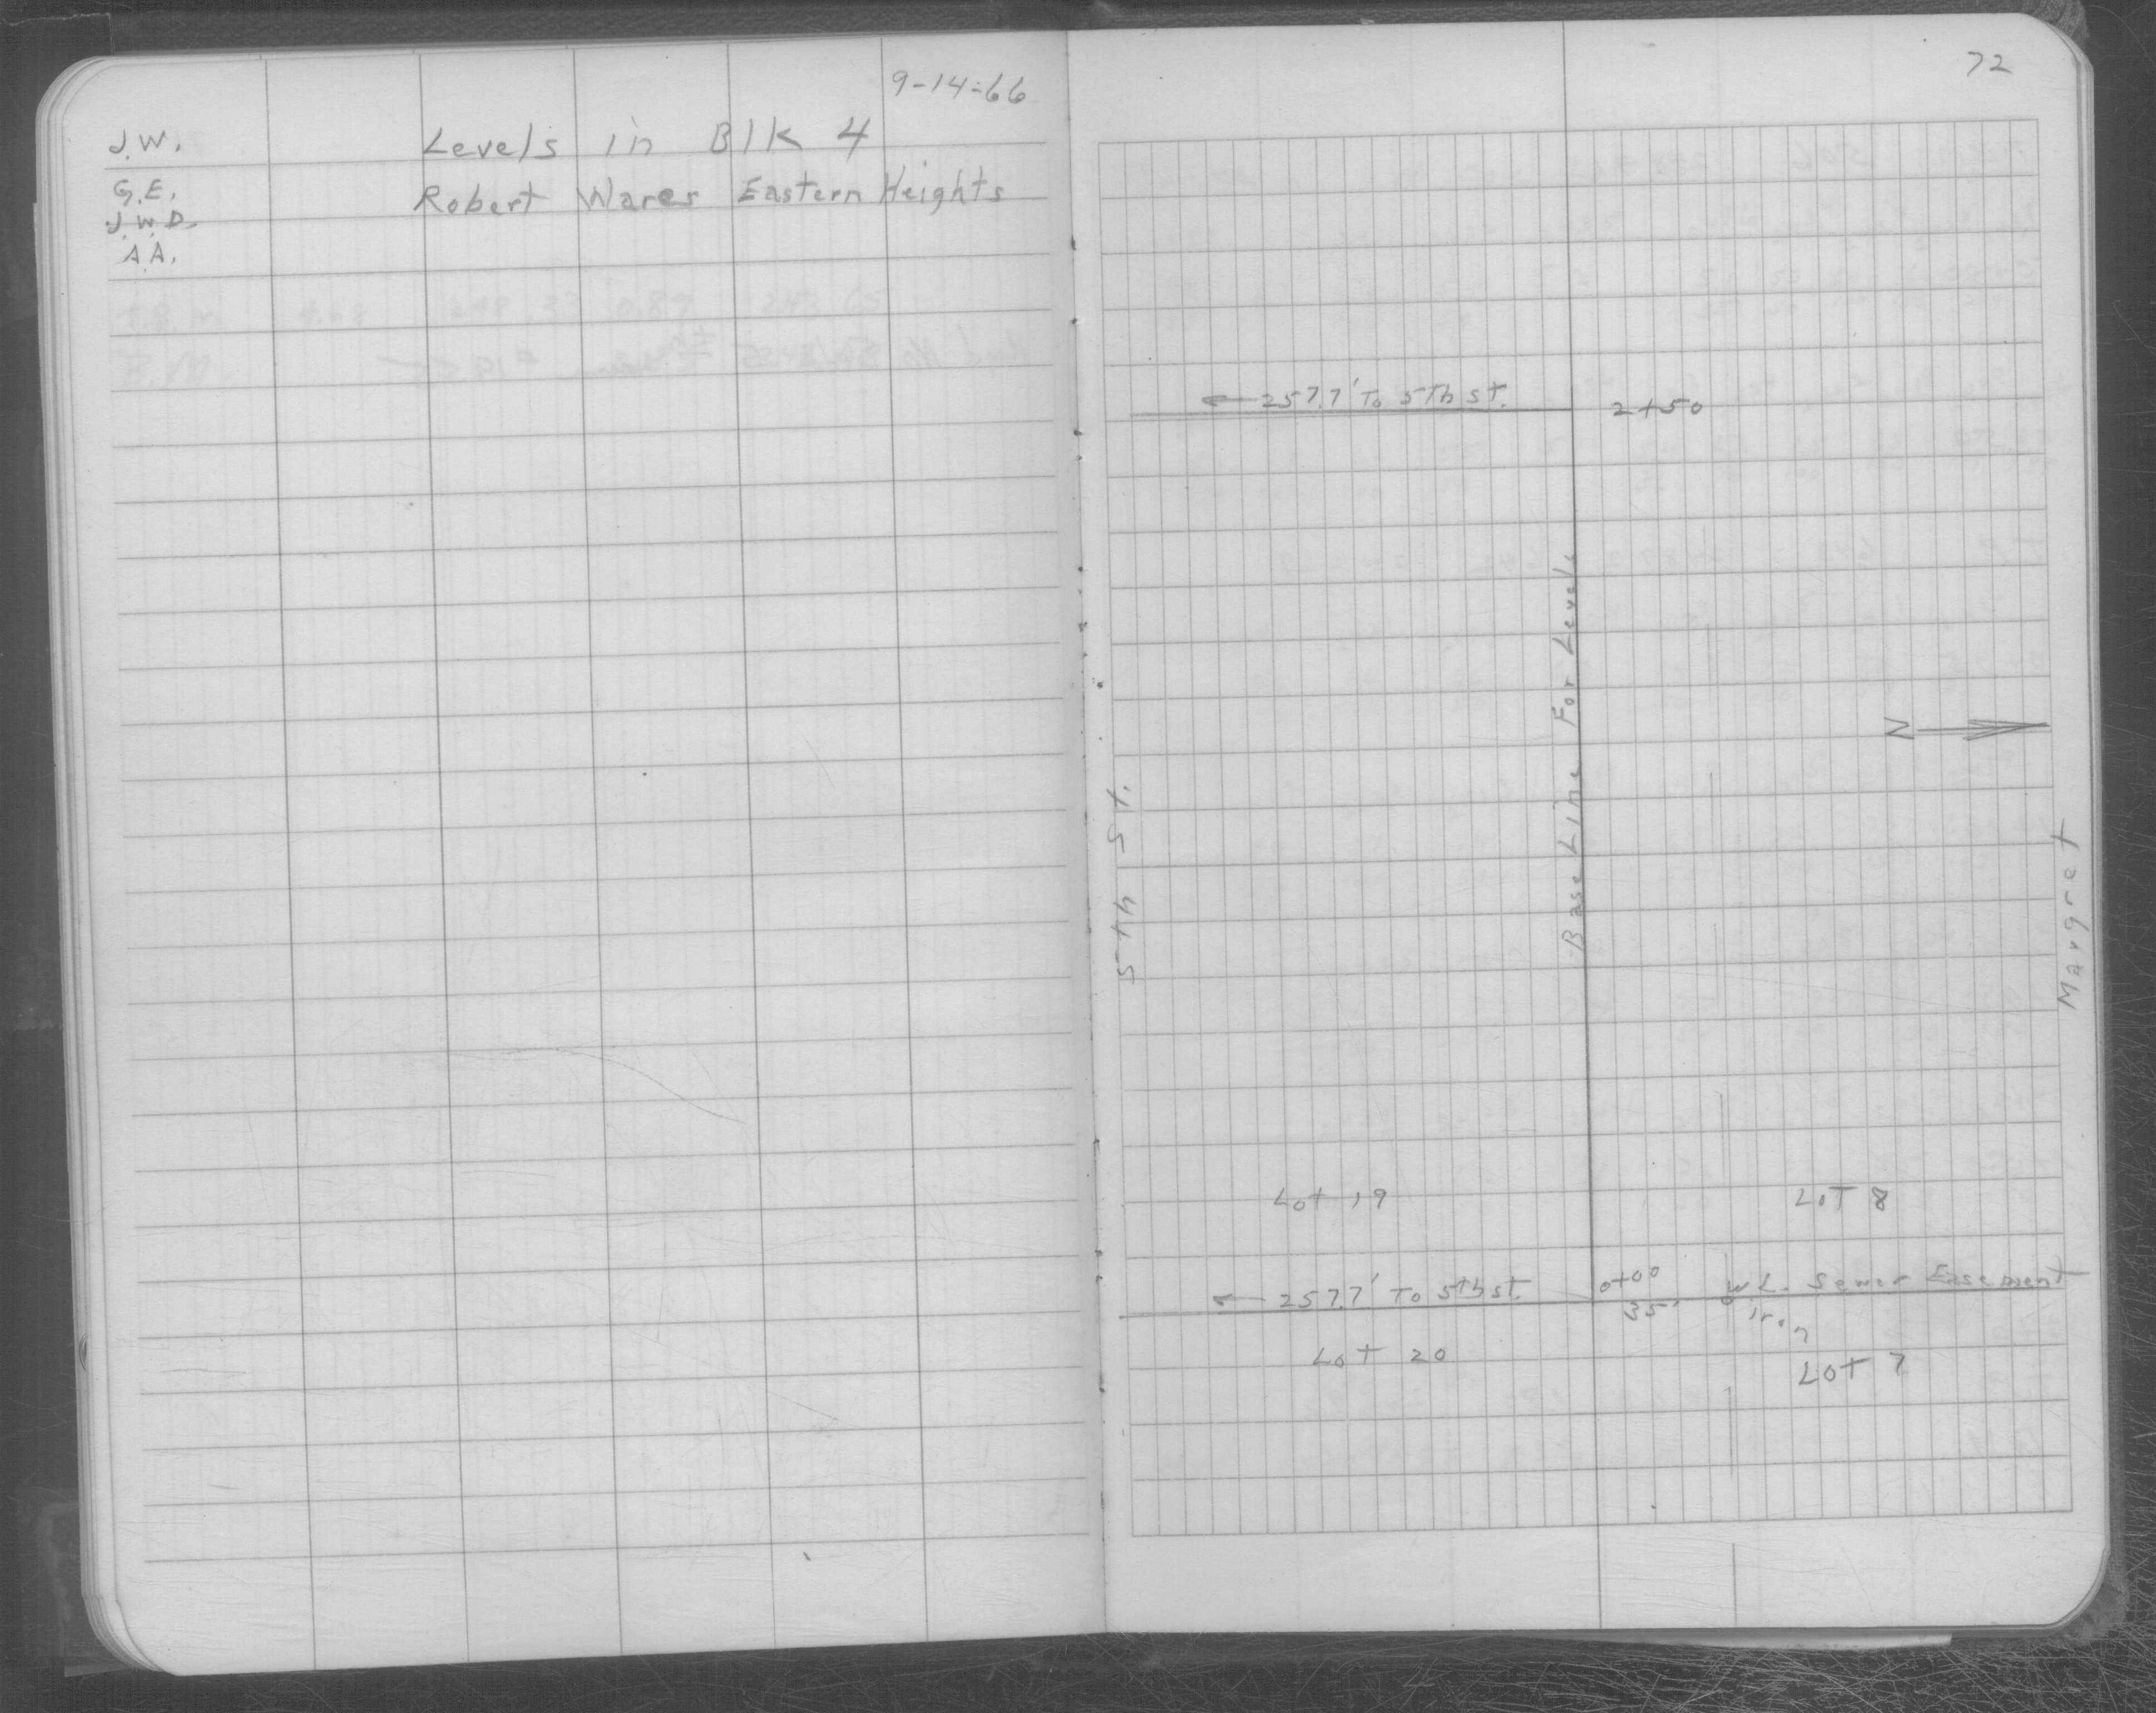 9-14-66
J.W.
Levels in Blk 4
G.E.
Robert Wares Eastern Heights
J.W.D.
A.A.
72
257.7' To 5Th St.
2+50
Base Line For Levels
N
5th St.
Margret
Lot 19
Lot 8
257.7' To 5th St.
0+00
W L. Sewer Easement
35'
iron
Lot 20
Lot 7